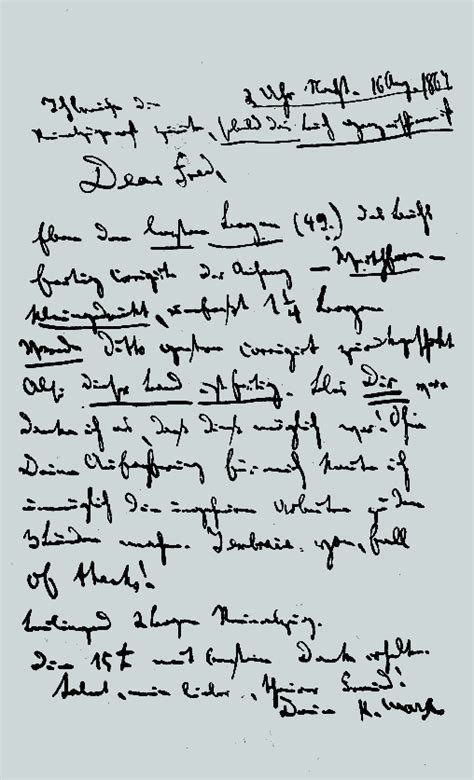 Ich brauche die 2 Uhr Nacht. 16 Aug. 1867
zurück, sobald das Buch ganz erschienen ist
Dear Fred,
Eben den letzten Bogen (49.) des Buchs
fertig corrigirt. Der Anhang – Werthform –
kleingedruckt, umfaßt 1 1/4 Bogen.
Vorrede ditto gestern corrigirt zurückgeschickt.
Also dieser Band ist fertig. Blos Dir ver-
danke ich es, daß dieß möglich war! Ohne
Deine Aufopferung für mich konnte ich
unmöglich die ungeheuren Arbeiten zu den
3 Bänden machen. I embrace you, full
of thanks!
Beiliegend 2 Bogen Reinabzug.
Die 15 £ mit bestem Dank erhalten.
Salut, mein lieber, theurer Freund!
Dein K. Marx